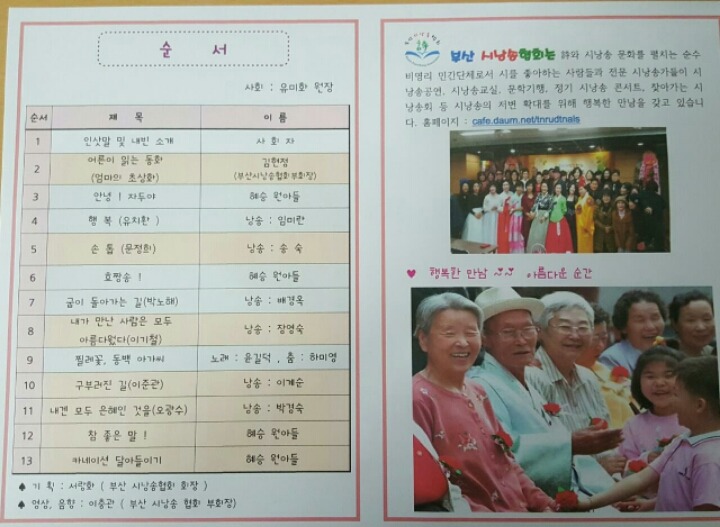 순 서
사회 : 유미화 원장
순서 제 목 이 름
1 인삿말 및 내빈 소개 사 회 자
2 어른이 읽는 동화 (엄마의 초상화) 김현정 (부산시낭송협회부회장)
3 안녕 ! 자두야 혜승 원아들
4 행 복 (유치환 ) 낭송 : 임미란
5 손 톱 (문정희) 낭송 : 송 숙
6 효짱송 ! 혜승 원아들
7 굽이 돌아가는 길(박노해) 낭송 : 배경옥
8 내가 만난 사람은 모두 아름다웠다(이기철) 낭송 : 장영숙
9 찔레꽃, 동백 아가씨 노래 : 윤길덕 , 춤 : 하미영
10 구부러진 길(이준관) 낭송 : 이계순
11 내겐 모두 은혜인 것을(오광수) 낭송 : 박경숙
12 참 좋은 말 ! 혜승 원아들
13 카네이션 달아들이기 혜승 원아들
♠ 기 획 : 서랑화 ( 부산 시낭송협회 회장 )
♠ 영상, 음향 : 이충관 ( 부산 시낭송 협회 부회장)
부산 시낭송협회는 詩와 시낭송 문화를 펼치는 순수
비영리 민간단체로서 시를 좋아하는 사람들과 전문 시낭송가들이 시
낭송공연, 시낭송교실, 문학기행, 정기 시낭송 콘서트, 찾아가는 시
낭송회 등 시낭송의 저변 확대를 위해 행복한 만남을 갖고 있습니
다. 홈페이지 : cafe.daum.net/tnrudtnals
♥ 행복한 만남 ~ 아름다운 순간